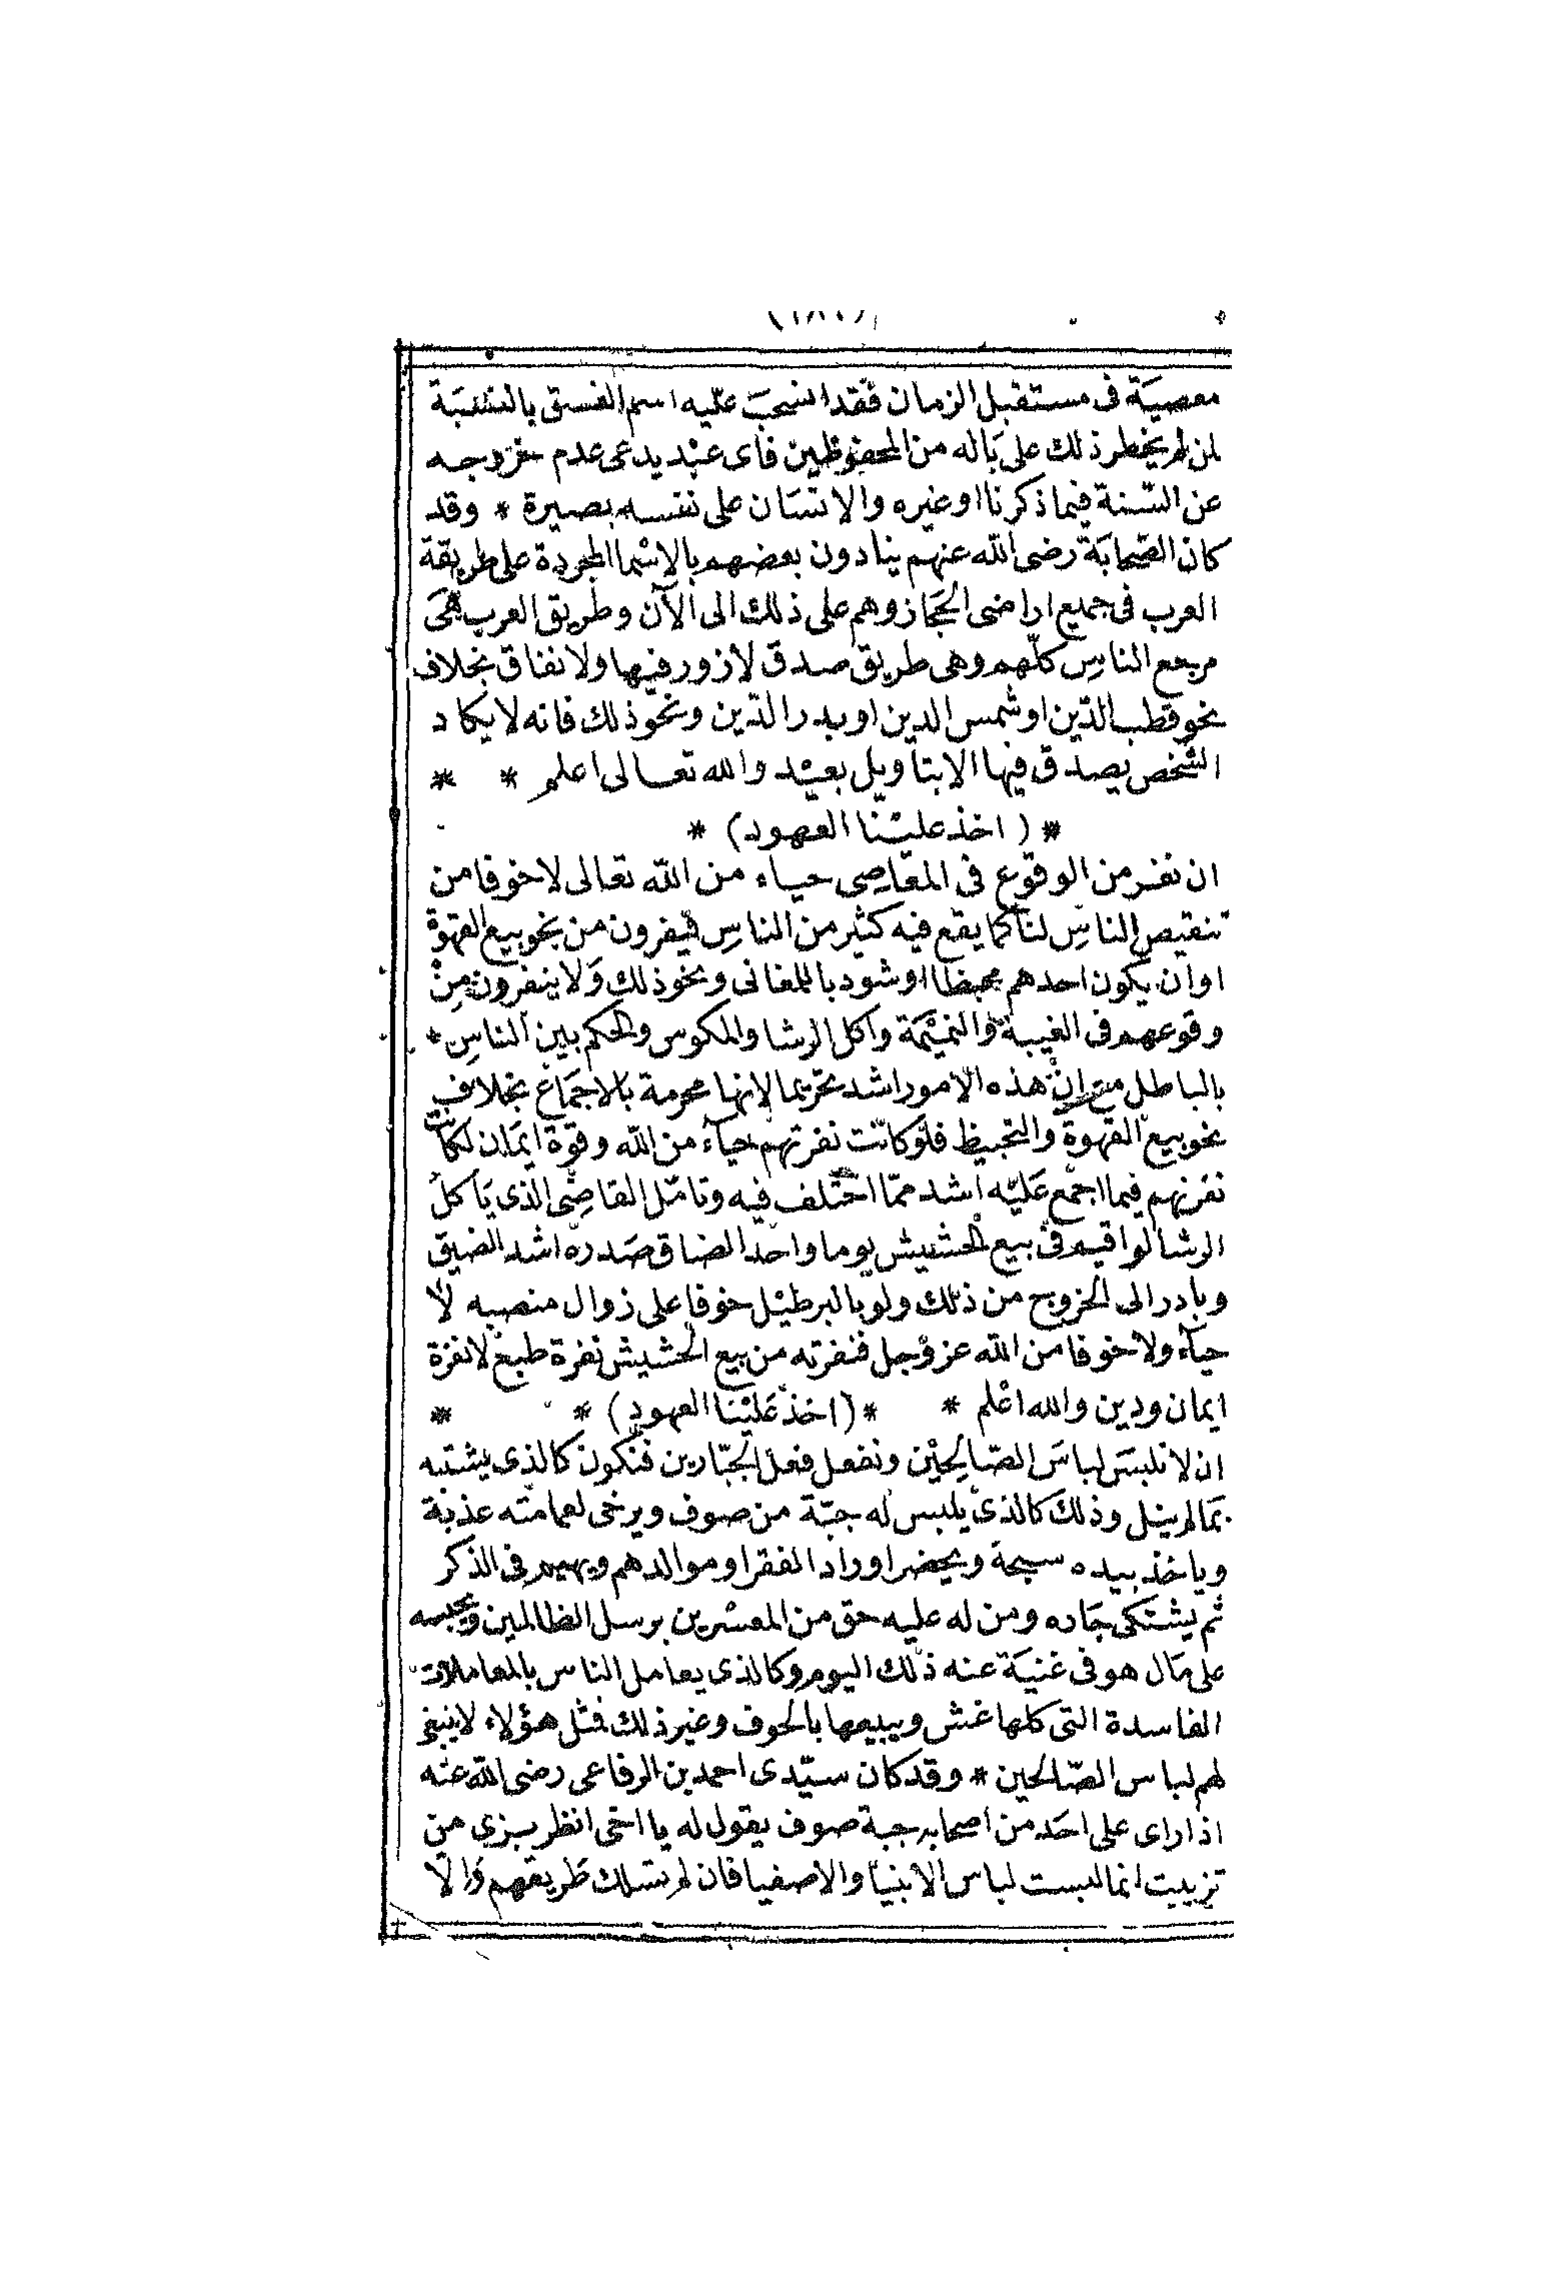 معصيَة فى مستقبل الزمان فقد انسحبَ عليه اسم الفسق بالنسْبَة
لمن لم يخطر ذلك على بَاله من المحفوظين فاى عبْد يدعى عدم خروجه
عن السّنة فيما ذكرنا او غيره والانسَان على نفسه بصيرة * وقد
كان الصّحابَة رضى الله عنهم ينادون بعضهم بالاسْما المجردة على طريقة
العرب فى جميع اراضى الحجَاز وهم على ذلك الى الآن وطريق العرب هىَ
مرجع الناسِ كلّهم وهى طريق صدق لازور فيها ولا نفاق بخلاف
نحو قطب الدّين او شمس الدين او بدر الدّين ونحو ذلك فانه لايكاد
الشخص يصدق فيها الابتاويل بعيْد والله تعالى اعلم * *
* ( اخذ عليْنا العهود) *
ان نفر من الوقوع فى المعَاصِى حياء من الله تعالى لا خوفا من
تنقيص الناسِ لنا كما يقع فيه كثير من الناسِ فيفرون من نحو بيع القهوة
او ان يكون احدهم محبظا او شود بالمغانى ونحو ذلك وَلا ينفرون مِنْ
وقوعهم فى الغيبة والنميْمَة واكل الرشا والمكوس والحكم بين الناسِ *
بالباطل مع ان هذه الامور اشد تحريما لانها محرمة بالاجمَاع بخلاف
نحو بيع القهوة والتحبيظ فلو كانت نفرتهم حيآء من الله وقوة ايمَان لكانت
نفرتهم فيما اجمع عَليْه اشد ممّا اختلف فيه وتامّل القاضِى الذى يَاكل
الرشا لو اقيم فى بيع الحشيش يوما واحدا لضاق صَدره اشد الضيق
وبادر الى الخروج من ذلك ولو بالبرطيْل خوفا على زوال منصبه لا
حيآء ولا خوفا من الله عز وجل فنفرته من بيع الحشيش نفرة طبع لا نفرة
ايمان ودين والله اعْلم * * (اخذ عَليْنا العهود) * *
ان لا نلبسَ لباسَ الصّالِحِيْن ونفعل فعل الجبّارين فنكون كالذى يشتبه
بمَا لم ينل وذلكَ كالذى يلبس له جبّة من صوف ويرخى لعمامته عذبة
وياخذ بيده سبحة ويحضر اوراد الفقرا وموالدهم ويهيم فى الذكر
ثم يشتكى جَاره ومن له عليه حق من المعسْرين برسل الظالمين ويحبسه
على مَال هو فى غنيَة عنه ذلك اليوم وكالذى يعامل الناس بالمعاملات
الفاسدة التى كلها غش ويبيعها بالحوف وغير ذلك فمثل هؤلاء لا ينبغى
لهم لباس الصّالحين * وقد كان سيّدى احمد بن الرفاعى رضى الله عنه
اذا راى على احَد من اصحابه جبة صوف يقول له يا اخى انظر بزي من
تزييت انما لبست لباس الانبيَا والاصفيا فان لم تسلك طريقهم وَالا